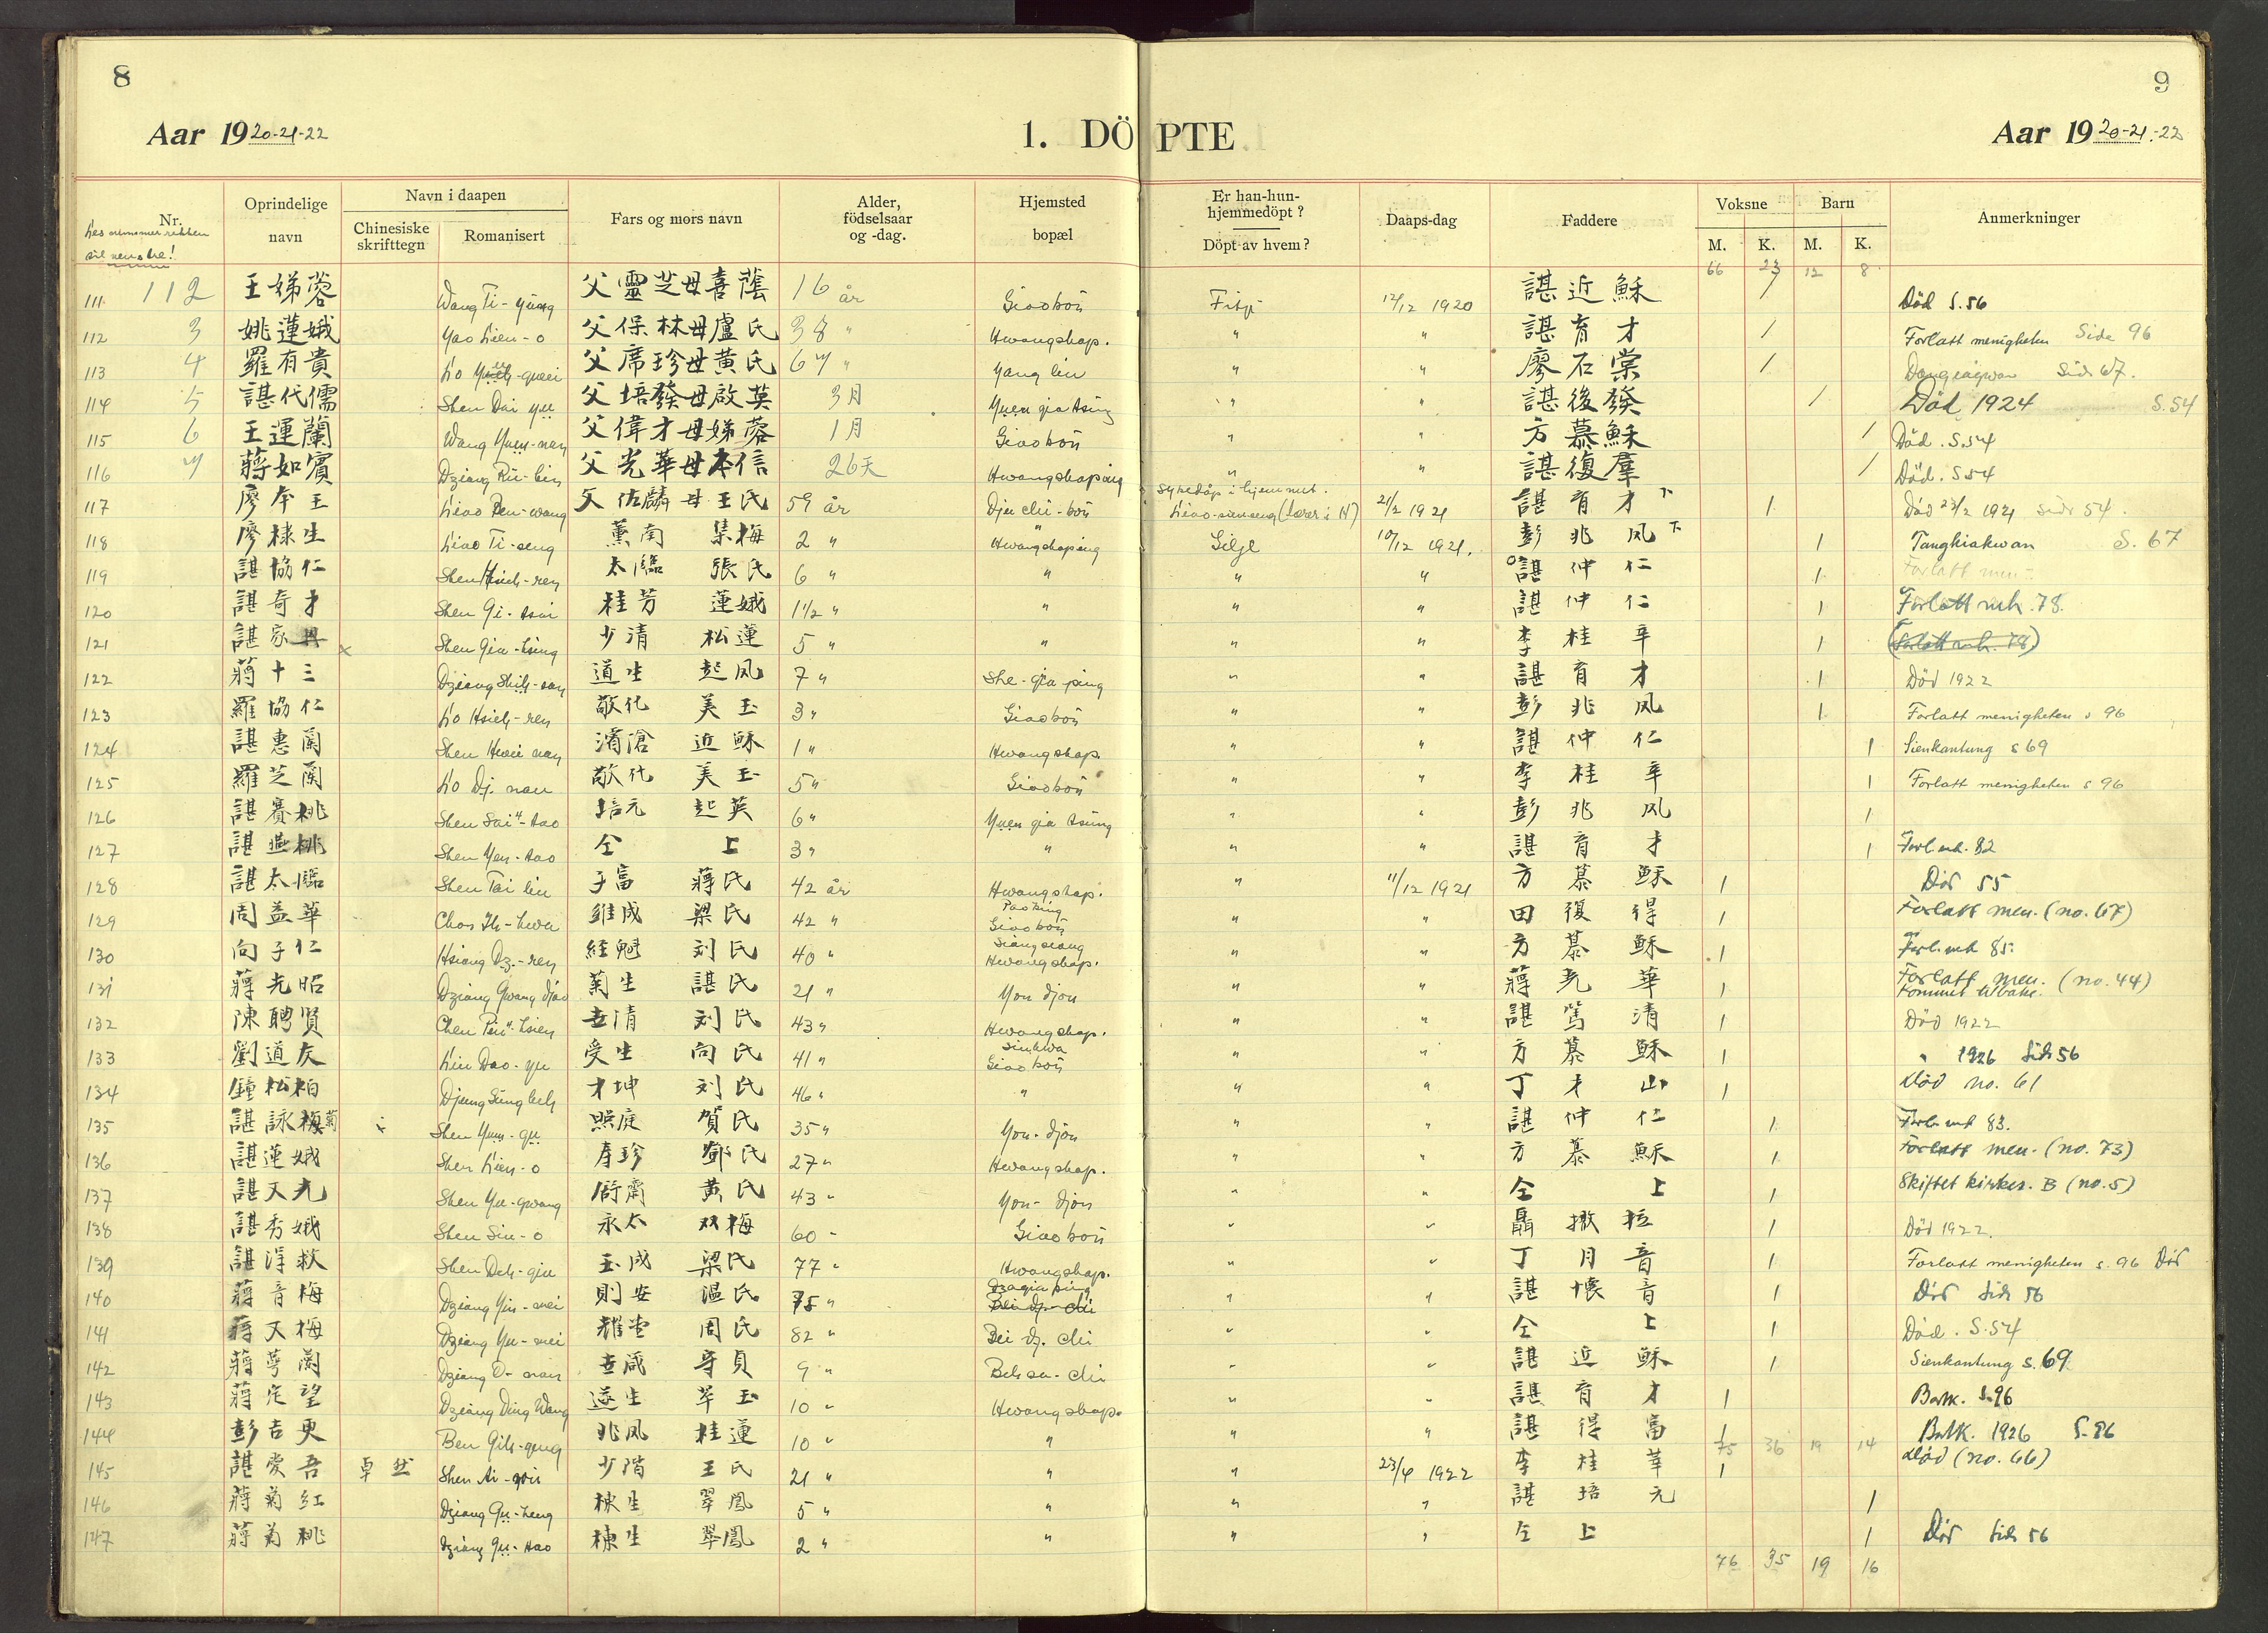 8
9
Aar 1920-21-22
1. DÖPTE
Aar 1920-21-22
Nr.
Oprindelige navn
Navn i daapen
Chinesiske skrifttegn
Romanisert
Fars og mors navn
Alder, födselsaar og -dag.
Hjemsted bopæl
Er han-hun-hjemmedöpt? Döpt av hvem?
Daaps-dag
Faddere
Voksne M. K.
Barn M. K.
Anmerkninger
66 23 12 8
111 112 王娣蓉 父靈芝母喜蔭 16 år Giaobön 12/12 1920 諶近穌 / Död S.56
112 3 姚蓮娥 Yao Lien-o 父保林母盧氏 38 " Hwangshap. " " 諶育才 / Forlatt menigheten Side 96
113 4 羅有貴 父席珍母黃氏 67 " Yang lin " " 廖石棠 / Side 67.
114 5 諶代儒 Shen Dai yu 父培發母啟英 3月 Yuen gia tsing " " 諶後發 / Död 1924 S.54
115 6 王運蘭 Wang Yuin-nan 父偉才母娣蓉 1月 Giaobön " " 方慕穌 / Död. S.54
116 7 蔣如賓 Dziang Ru-bin 父光華母本信 26天 Hwangshaping " " 諶復羣 / Död. S54
117 廖本王 Liao Ben-wang 父佐麟母王氏 59 år Djin chi-bön hjemmet. Liao-sienseng 21/2 1921 諶育才 1 Död 23/2 1921 side 54.
118 廖棣生 Liao Ti-seng 薰南 集梅 2 " Hwangshaping Gilje 10/12 1921. 彭兆风 1 Tangkiakwan S. 67
119 諶協仁 Shen Hsieh-ren 太臨 張氏 6 " " " " 諶仲仁 1 Forlatt men.
120 諶奇才 Shen Gi-tsai 桂芳 蓮娥 1 1/2 " " " " 諶仲仁 1 Forlatt mh. 78.
121 諶家興 Shen Gia-hsing 少清 松蓮 5 " " " " 李桂辛 1 (Forlatt mh. 78)
122 蔣十三 Dziang Shih-san 道生 起风 7 " She-gia-ping " " 諶育才 1 Död 1922
123 羅協仁 Lo Hsieh-ren 敬化 美玉 3 " Giaobön " " 彭兆风 1 Forlatt menigheten s 96
124 諶惠蘭 Shen Hwei nan 濱滄 近穌 1 " Hwangshap. " " 諶仲仁 1 Sienkantung s 69
125 羅芝蘭 Lo Dj. nan 敬化 美玉 5 " Giaobön " " 李桂辛 1 Forlatt menigheten s 96
126 諶賽桃 Shen Sai-tao 培元 起英 6 " Yuen gia tsing " " 彭兆风 1
127 諶燕桃 Shen Yen-tao 仝上 3 " " " " 諶育才 1 Forl. mh. 82
128 諶太臨 Shen Tai lin 子富 蔣氏 42 år Hwangshap. " 11/12 1921 方慕穌 1 Död 55
129 周益華 維成 梁氏 42 " Paoking Giaobön " " 田復得 1 Forlatt men. (no. 67)
130 向子仁 Hsiang Dz.-ren 經魁 刘氏 40 " Siangsiang Hwangshap. " " 方慕穌 1 Forl. mh 85.
131 蔣光昭 Dziang Gwang djao 菊生 諶氏 21 " You djou " " 蔣光華 1 Forlatt men. (no. 44) kommet tilbake.
132 陳聘贤 Chen Pin-hsien 吉清 刘氏 43 " Hwangshap. " " 諶篤清 1 Död 1922
133 劉道友 Liu Dao-yu 受生 向氏 41 " Sinhwa Giaobön " " 方慕穌 1 " 1926 Side 56
134 鐘松柏 Djung Sung beh 才坤 刘氏 46 " " " " 丁才山 1 Död no. 61
135 諶詠梅菊 Shen Yuin-gu 照庭 賀氏 35 " You-djou " " 諶仲仁 1 Forl. mh 83.
136 諶蓮娥 Shen Lien-o 寿珍 鄧氏 27 " Hwangshap. " " 方慕穌 1 Forlatt men. (no. 73)
137 諶又光 Shen Yu-gwang 黃氏 43 " You-djou " " 仝上 1 Skiftet kirkes. B (no. 5)
138 諶秀娥 Shen Siu-o 永太 双梅 60 " Giaobön " " 聶撒拉 1 Död 1922.
139 諶得救 Shen Deh-giu 玉成 梁氏 77 " Hwangshap. " " 丁月音 1 Forlatt menigheten s. 96 Död
140 蔣音梅 Dziang Yin-mei 則安 溫氏 75 " " " 諶懷音 1 Död Side 56
141 蔣又梅 Dziang Yu-mei 耀堂 周氏 82 " Bei dz. chi " " 仝上 1 Död. S.54
142 蔣萼蘭 Dziang O-nan 吉咸 守貞 9 " Beh sa-chi " " 諶近穌 1 Sienkantung s. 69
143 蔣定望 Dziang Ding Wang 遂生 翠玉 10 " Hwangshap. " " 諶育才 1 S.96
144 彭吉更 Ben Gih-geng 兆凤 桂蓮 10 " " " " 諶得富 1 1926 S. 86
75 36 19 14
145 諶愛吾 卓然 Shen Ai-wu 少階 王氏 21 " " " 23/4 1922 李桂華 1 Död (no. 66)
146 蔣菊紅 Dziang Gu-heng 棟生 翠鳳 5 " " " " 諶培元 1
147 蔣菊桃 Dziang Gu-tao 棟生 翠鳳 2 " " " " 仝上 1 Död Side 56
76 35 19 16